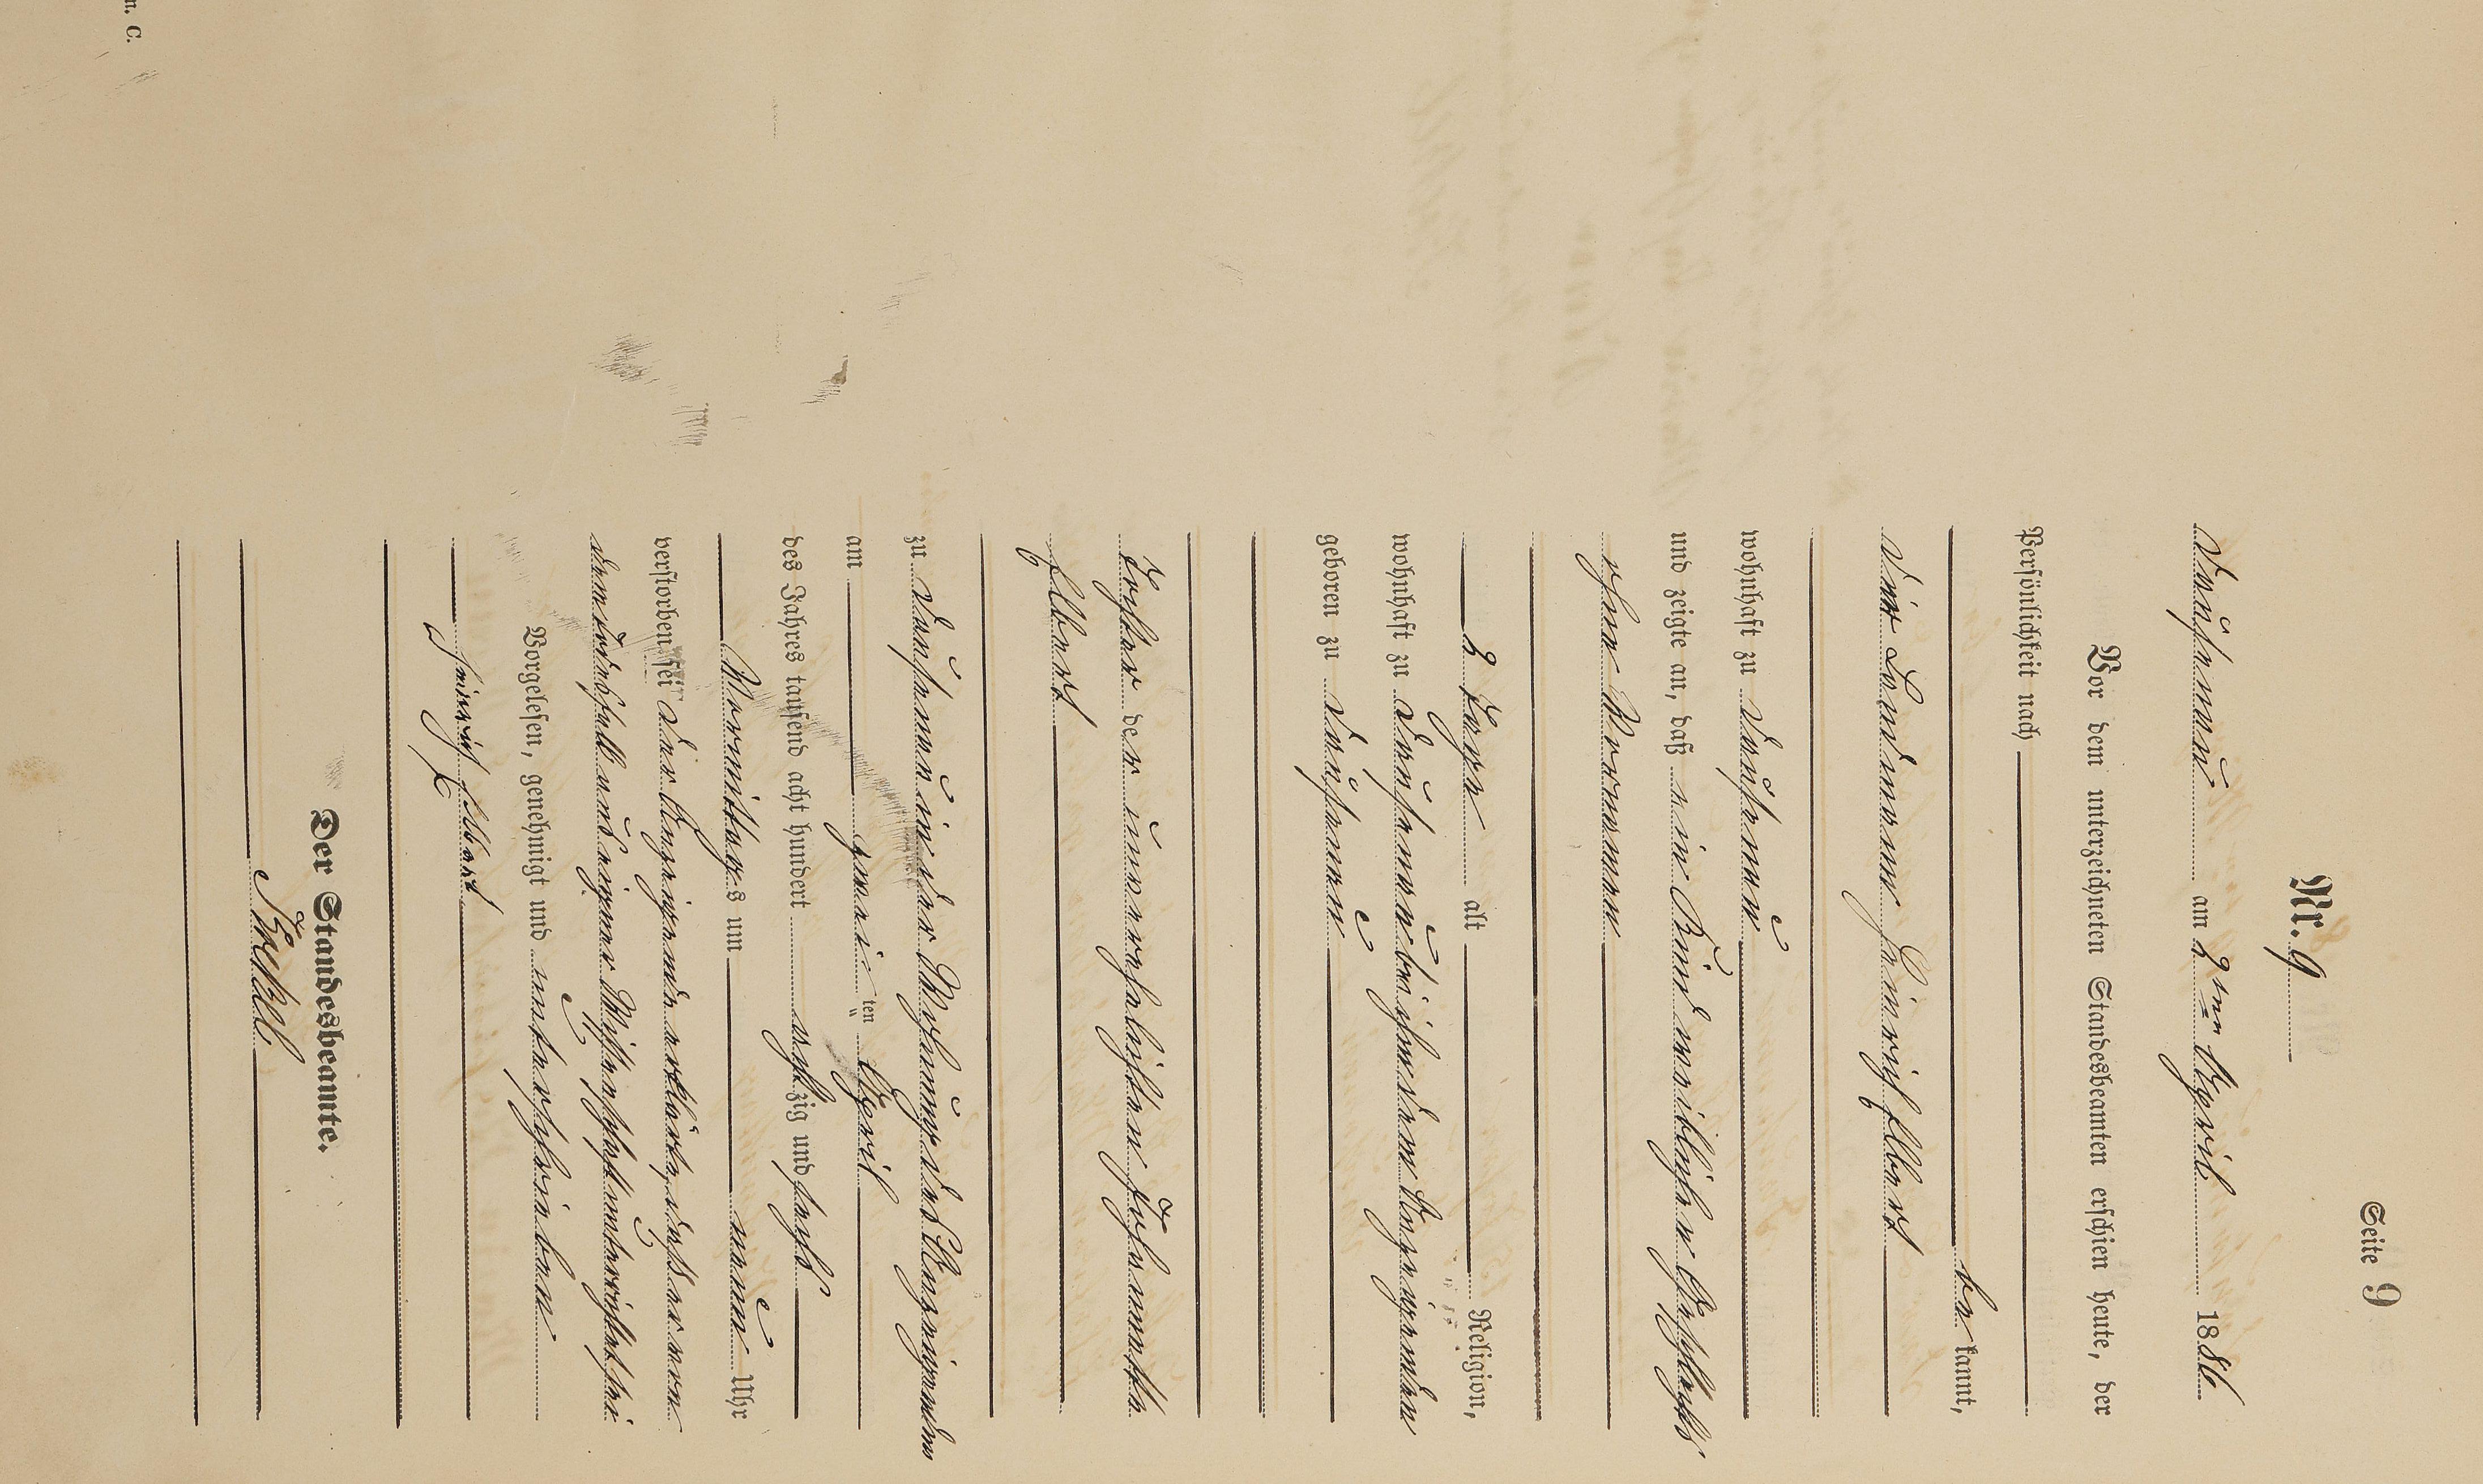 Seite 9
Nr. 9
Dausenau am 2ten April 1886
Vor dem unterzeichneten Standesbeamten erschien heute, der
Persönlichkeit nach
be kannt,
der Landmann Heinrich Elbert
wohnhaft zu Dausenau
und zeigte an, daß ein Kind weiblichen Geschlechts
ohne Vornamen
2 Tage alt Religion,
wohnhaft zu Dausenau bei ihm dem Anzeigenden
geboren zu Dausenau
Tochter der unverehelichten Johannette
Elbert
zu Dausenau in der Wohnung des Anzeigenden
am zwei ten April
des Jahres tausend acht hundert achtzig und sechs
Vormittags um neun Uhr
verstorben sei der Anzeigende erklärte, daß er von
dem Sterbefall aus eigner Wissenschaft unterrichtet sei
Vorgelesen, genehmigt und unterschrieben
Heinrich Elbert
Der Standesbeamte.
n. C.